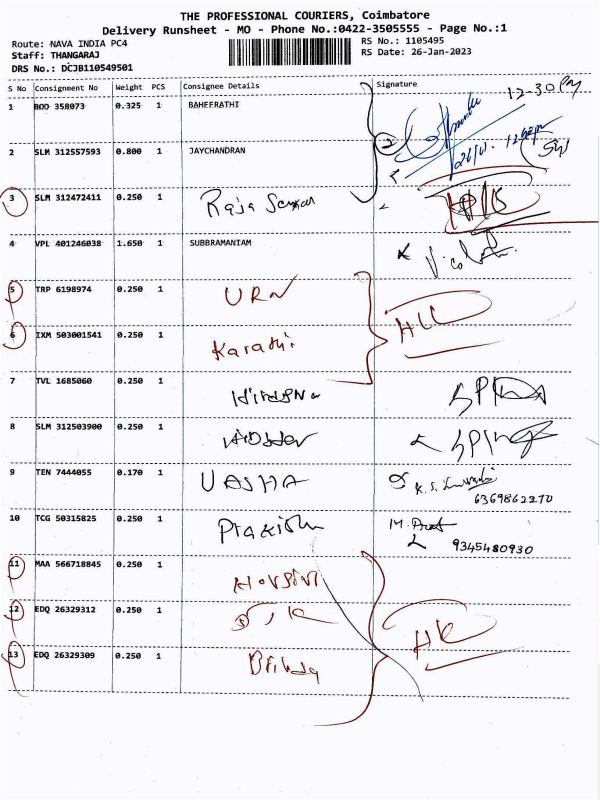 THE PROFESSIONAL COURIERS, Coimbatore
Delivery Runsheet - MO - Phone No.:0422-3505555 - Page No.:1
Route: NAVA INDIA PC4 RS No.: 1105495
Staff: THANGARAJ RS Date: 26-Jan-2023
DRS No.: DCJB110549501
S No Consignment No Weight PCS Consignee Details Signature
12-30 pm
1 BOD 358073 0.325 1 BAHEERATHI
2 SLM 312557593 0.800 1 JAYCHANDRAN
3 SLM 312472411 0.250 1 Raja
4 VPL 401246038 1.650 1 SUBBRAMANIAM
5 TRP 6198974 0.250 1 URN
6 IXM 503001541 0.250 1 Karathi
7 TVL 1685060 0.250 1
8 SLM 312503900 0.250 1
9 TEN 7444055 0.170 1 UASHA K.S.
6369862270
10 TCG 50315825 0.250 1 M.
9345480930
11 MAA 566718845 0.250 1
12 EDQ 26329312 0.250 1
13 EDQ 26329309 0.250 1